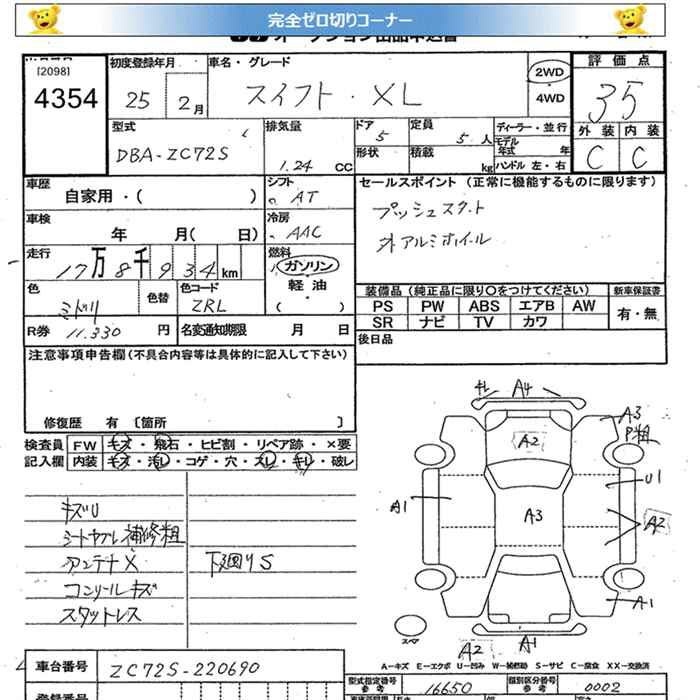 完全ゼロ切りコーナー
[2098]
4354
初度登録年月
25 2月
車名・グレード
スイフト・XL
2WD
4WD
評価点
35
外装 内装
C C
型式
DBA-ZC72S
排気量
1.24 CC
ドア
5
形状
定員
5人
積載
kg
ディーラー・並行
モデル年式 年
ハンドル 左・右
車歴
自家用・( )
シフト
AT
セールスポイント (正常に機能するものに限ります)
プッシュスタート
外アルミホイール
車検
年 月( 日)
冷房
AAC
走行
17万8千934km
燃料
ガソリン
軽油
( )
色
ミドリ
色替
色コード
ZRL
装備品 (純正品に限り〇をつけてください)
PS PW ABS エアB AW
SR ナビ TV カワ
新車保証書
有・無
R券 11.330 円
名変通知期限 月 日
後日品
注意事項申告欄(不具合内容等は具体的に記入して下さい)
修復歴 有 〔箇所 〕
検査員記入欄
FW キズ・飛石・ヒビ割・リペア跡・×要
内装 キズ・汚レ・コゲ・穴・スレ・キレ・破レ
キズU
補修粗
アンテナX
下廻りS
コンソールキズ
スタットレス
キレ A4
A3
P粗
A2
A1
U1
A3
A2
A1
スペア
A2 A1
A-キズ E-エクボ U-凹み W-補修跡 S-サビ C-腐食 XX-交換済
車台番号
ZC72S-220690
型式指定番号
参考
16650
類別区分番号
参考
0002
登録番号